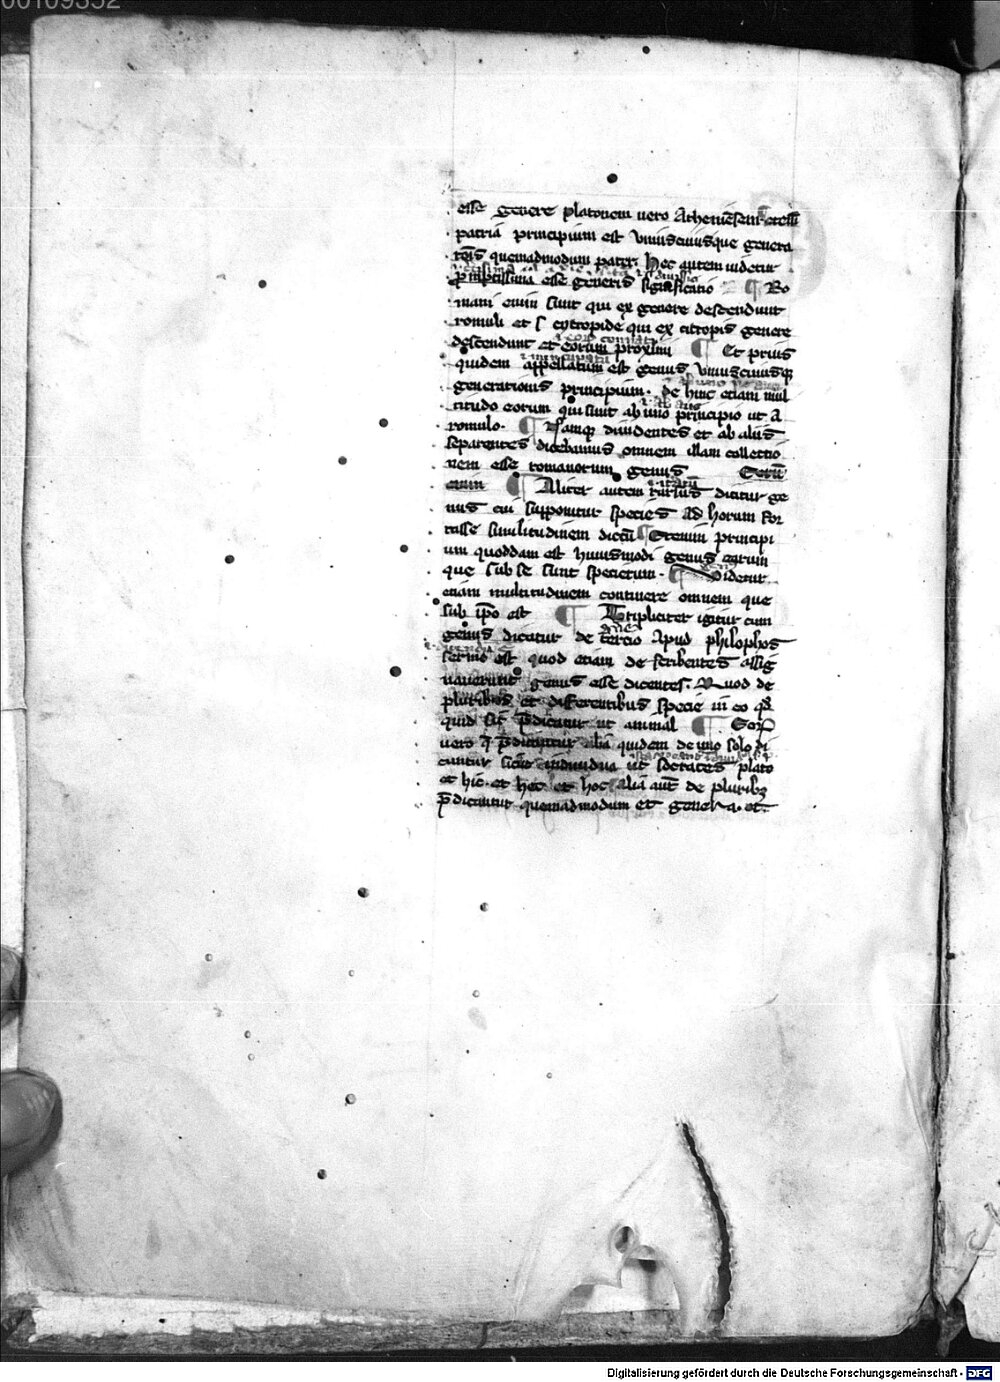 00109332
esse genere platonem uero Atheniēsem etenī
patria principium est uniuscuiusque genera
tōis quemadmodum pater. Hec autem uidetur
ꝓmptissima esse generis significatio ¶ Ro
mani enim sunt qui ex genere descendunt
romuli et cycropide qui ex cicropis genere
descendunt et eorum proximi ¶ Et prius
quidem appellatum est genus uniuscuiusqꝫ
generationis principium. de hinc etiam mul
titudo eorum qui sunt ab uno principio ut a
romulo. ¶ Namqꝫ diuidentes et ab aliis
separentes dicebamus omnem illam collectio
nem esse romanorum genus
enim ¶ Aliter autem rursus dicitur ge
nus cui supponitur species ad horum for
tasse similitudinem dictū ¶ Etenim principi
um quoddam est huiusmodi genus earum
que sub se sunt specierum. ¶ Videtur
etiam multitudinem continere omnem que
sub ip̄o est ¶ Tripliciter igitur cum
genus dicatur de tercio apud philophos
sermo est quod etiam de scribentes assig
nauerunt genus esse dicentes. Quod de
pluribus et differentibus specie in eo qd̄
quid sit p̄dicatur ut animal ¶ Eorū
uero q̄ p̄dicantur alia quidem de uno solo di
cuntur sicut indiuidua ut socrates plato
et hic. et hec. et hoc alia aut̄ de pluribꝫ
p̄dicantur quemadmodum et genera. et
Digitalisierung gefördert durch die Deutsche Forschungsgemeinschaft - DFG